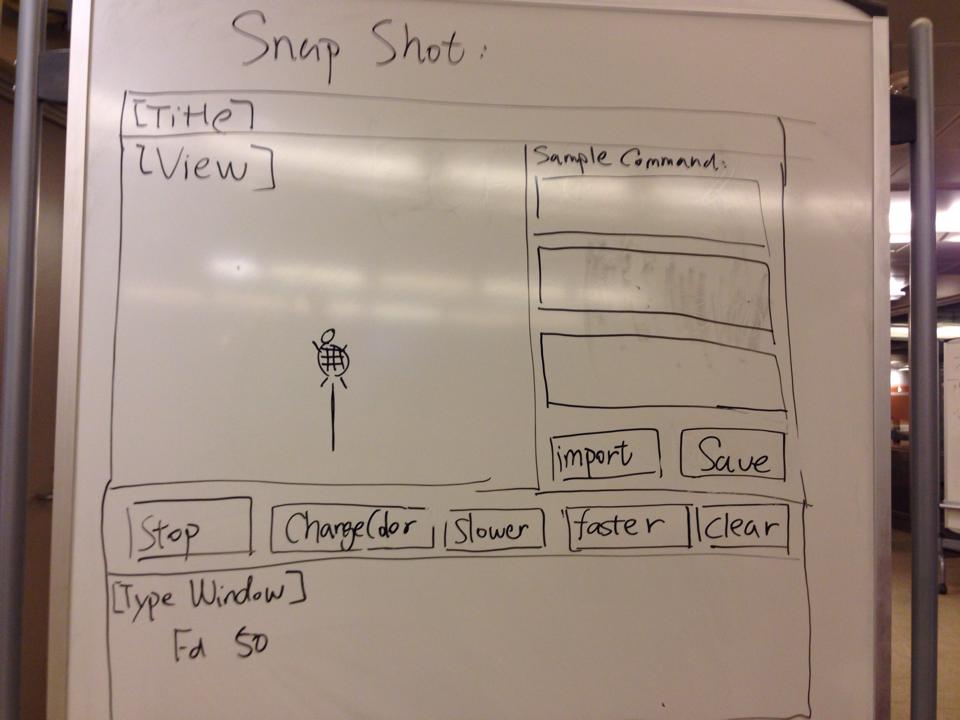 Snap Shot:
[Title]
[View]
Sample Command:
import
Save
Stop
Change Color
Slower
faster
clear
[Type Window]
Fd 50